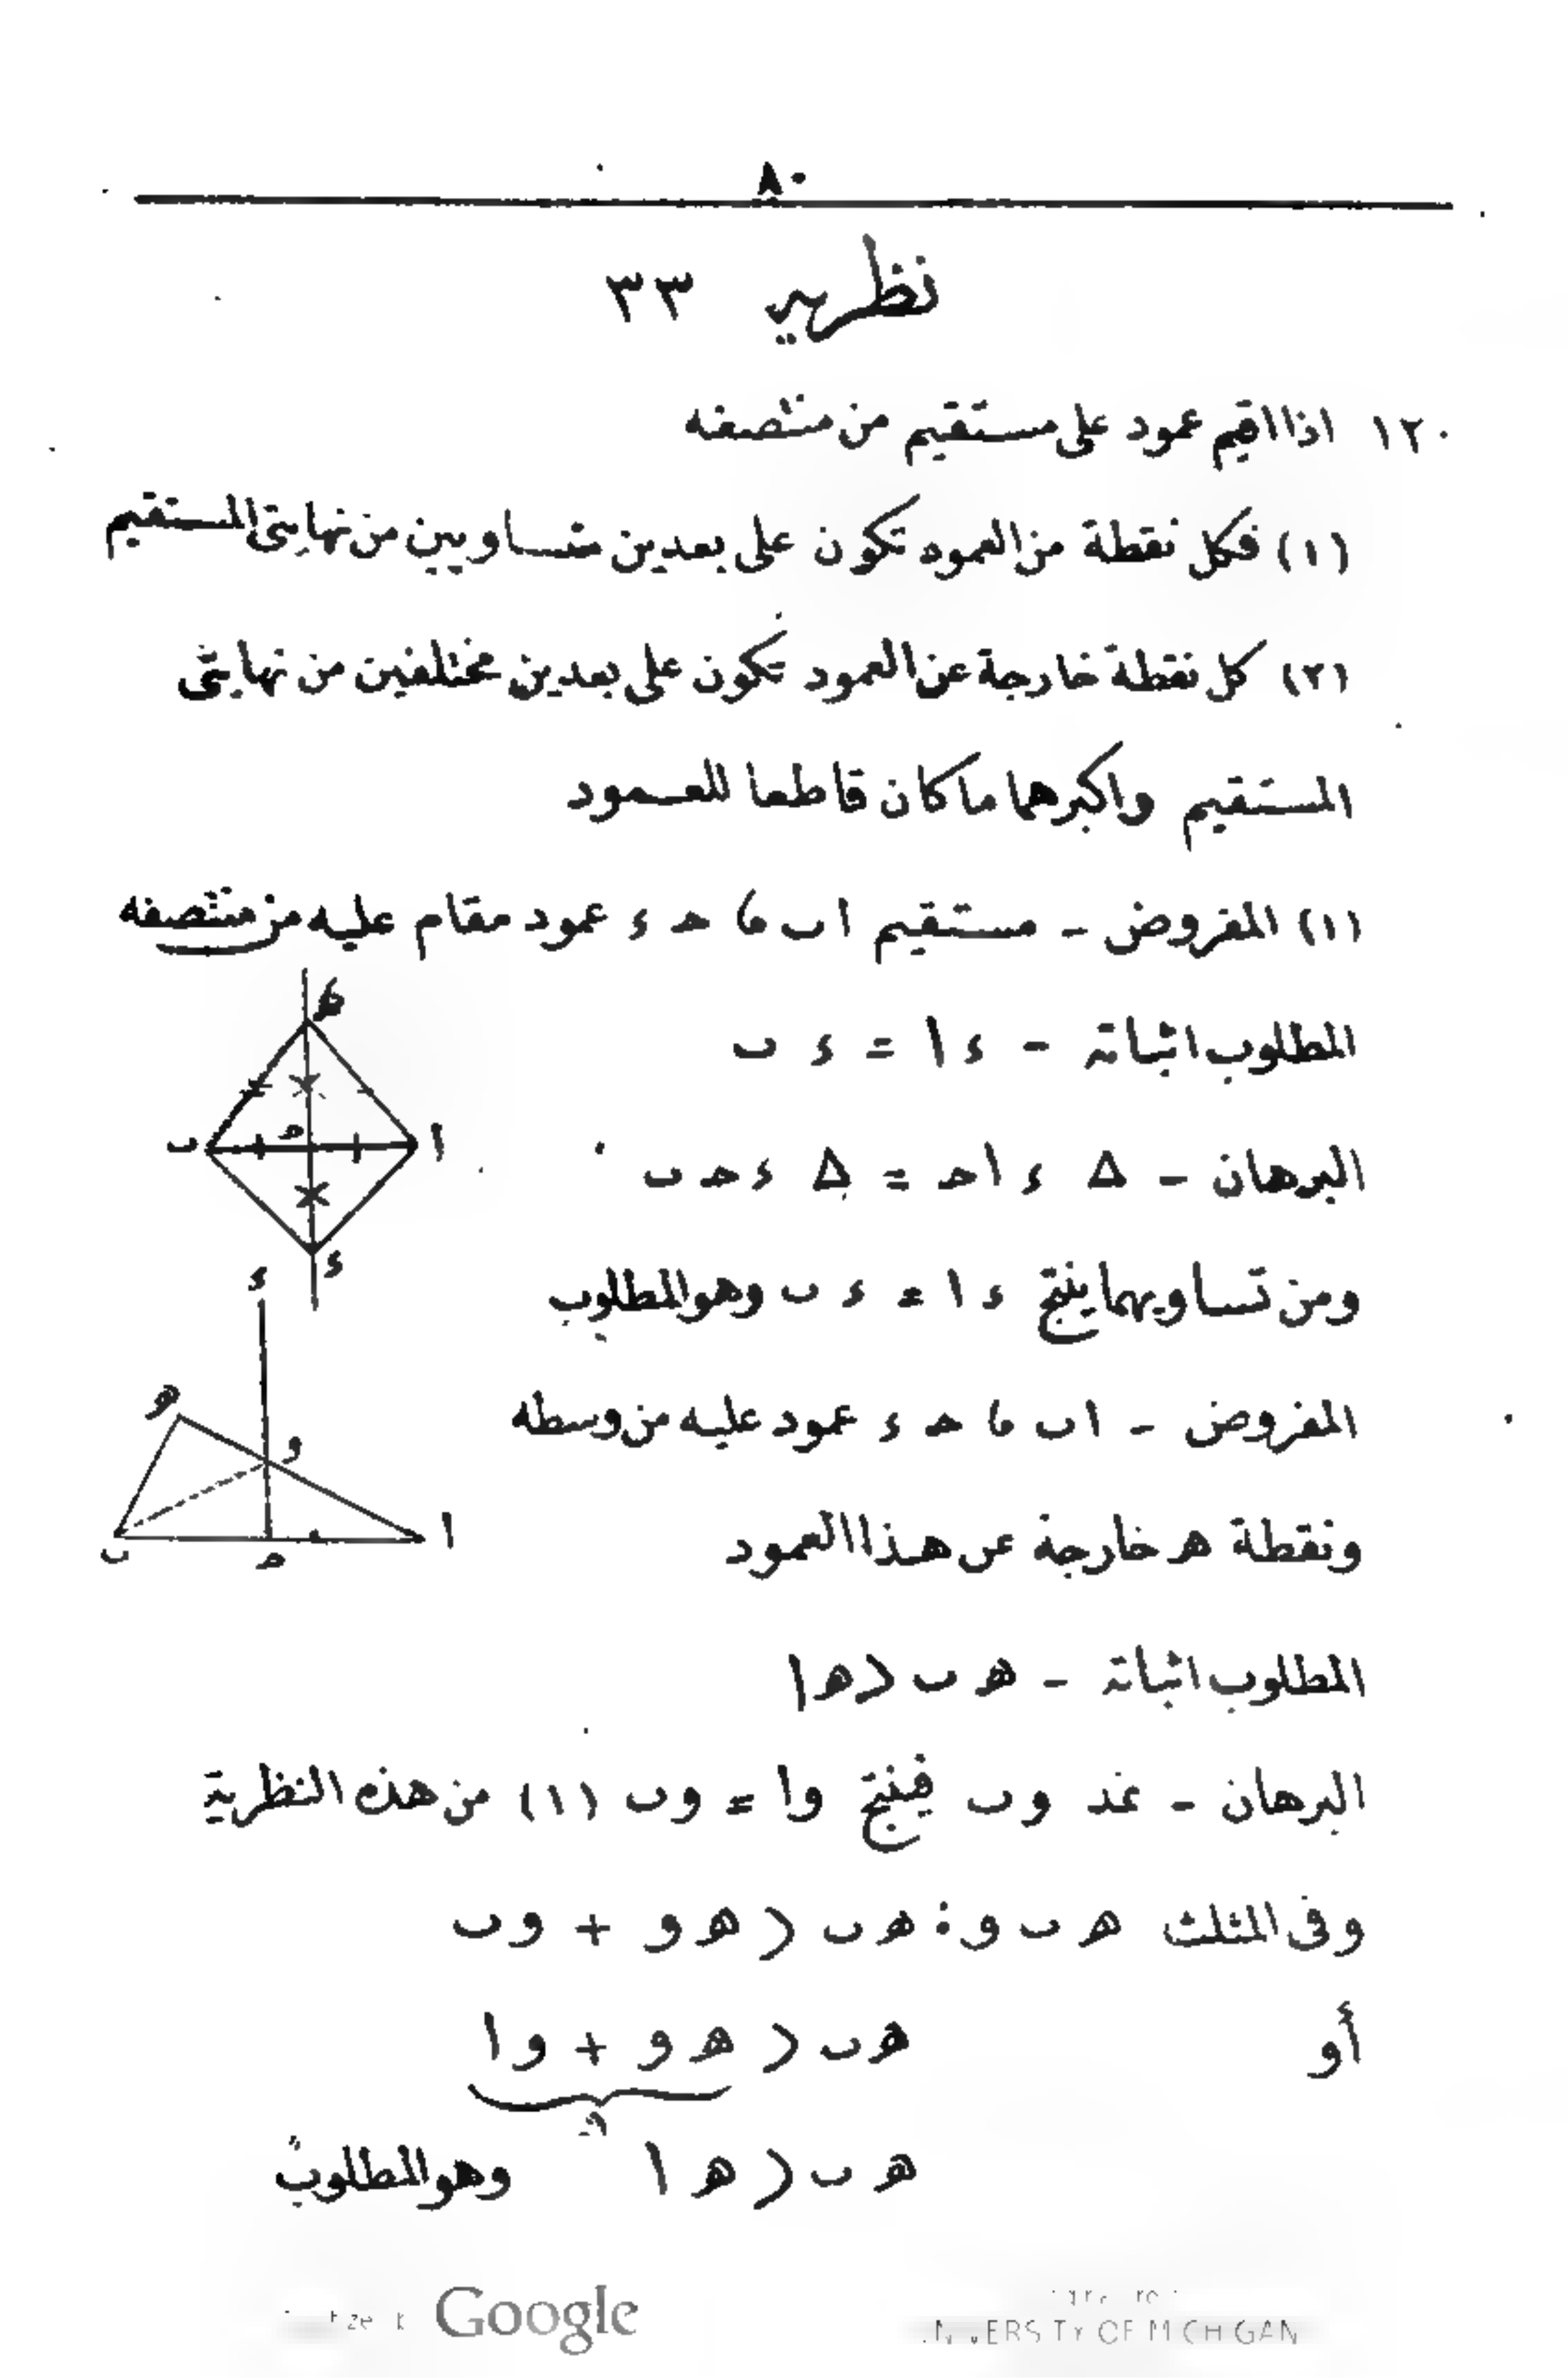 ٨٠
نظرية ٣٣
١٢٠ اذا اقيم عمود على مستقيم من منتصفه
(١) فكل نقطة من العمود تكون على بعدين متساويين من نهايتى المستقيم
(٢) كل نقطة خارجة عن العمود تكون على بعدين مختلفين من نهايتى
المستقيم واكبرهما ما كان قاطعا للعمود
(١) المفروض - مستقيم اب ٦ حـ ء عمود مقام عليه من منتصفه
المطلوب اثباته - ء ا = ء ب
البرهان - △ ء ا حـ = △ ء حـ ب
ومن تساويهما ينتج ء ا = ء ب وهو المطلوب
المفروض - اب ٦ حـ ء عمود عليه من وسطه
ونقطة هـ خارجة عن هذا العمود
المطلوب اثباته - هـ ب < هـ ا
البرهان - نمد وب فينتج وا = وب (١) من هذه النظرية
وفى المثلث هـ ب و : هـ ب < هـ و + وب
أو هـ ب < هـ و + وا
هـ ب < هـ ا وهو المطلوب
ا
ب
حـ
ء
ء
هـ
و
ا
ب
حـ
Google
UNIVERSITY OF MICHIGAN